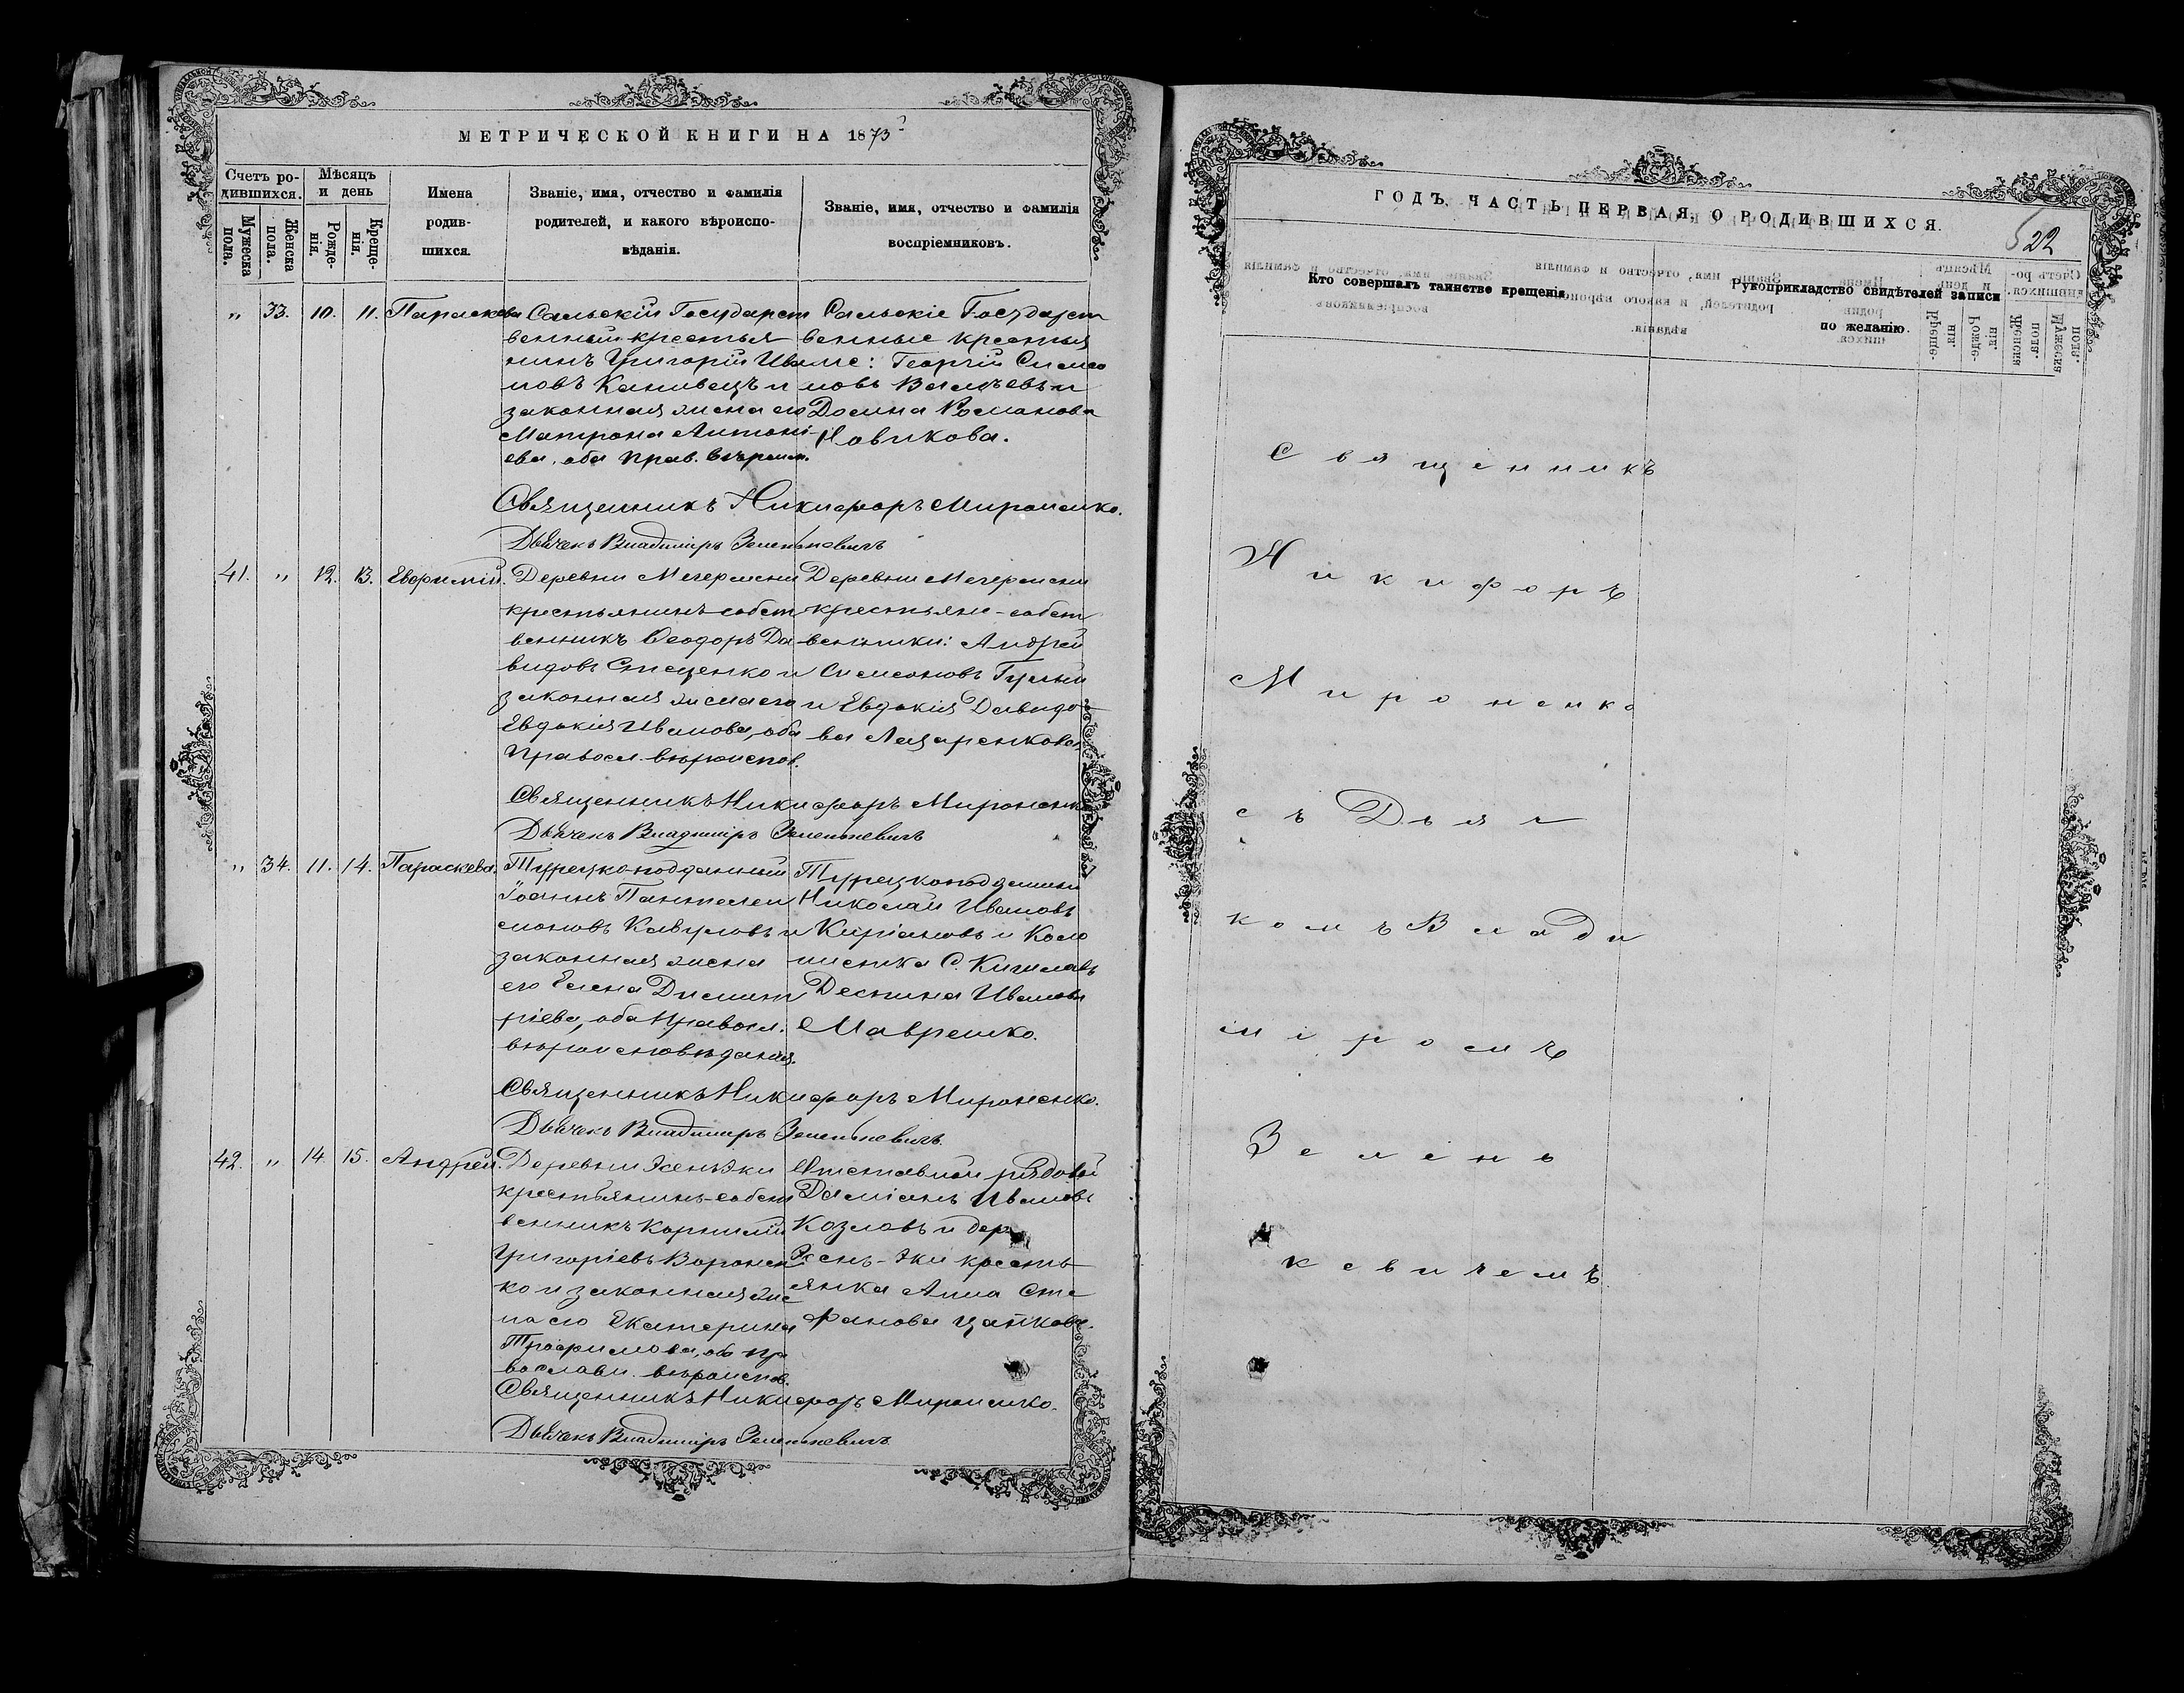 МЕТРИЧЕСКОЙ КНИГИ НА 1873
Счетъ ро-
дившихся.
Мѣсяцъ
и день
Мужеска пола.
Женска пола.
Рожде-
нія.
Креще-
нія.
Имена
родив-
шихся.
Званіе, имя, отчество и фамилія
родителей, и какого вѣроиспо-
вѣданія.
Званіе, имя, отчество и фамилія
воспріемниковъ.
„ 33. 10. 11. Параскева
Сальскій Государст
венный крестья
нинъ Григорій Ива
новъ Канивецъ и
законная жена его
Матрона Антоні-
ева, оба прав. вѣроисп.
Сальскіе Государст
венные крестья
не: Георгій Симео
новъ и
Домна Романова
Новикова.
Священникъ Никифоръ Мироненко.
Дьячекъ Владиміръ Зеленкевичъ
41. „ 12. 13. Евфимій.
Деревни
крестьянинъ-собст
венникъ Ѳеодоръ Да
видовъ Стеценко и
законная жена его
Евдокія Иванова, оба
правосл. вѣроиспов.
Деревни
крестьяне-собст
венники: Андрей
Симеоновъ
и Евдокія Давидо
ва Лазаренкова.
Священникъ Никифоръ Мироненко
Дьячекъ Владиміръ Зеленкевичъ
„ 34. 11. 14. Параскева.
Турецкоподданный
Іоаннъ Пантелеи
моновъ и
законная жена
его Елена Димит
ріева, оба правосл.
вѣроисповѣданія.
Турецкоподданный
Николай Ивановъ
Киріановъ и Коло
нистка С.
Деспина Иванова
Мавренко.
Священникъ Никифоръ Мироненко.
Дьячекъ Владиміръ Зеленкевичъ.
42. „ 14. 15. Андрей.
Деревни
крестьянинъ-собст
венникъ Корнилій
Григоріевъ Воронен
ко и законная же
на его Екатерина
Трофимова, оба пра
вославн. вѣроиспов.
Отставной рядовой
Даміанъ Ивановъ
Козловъ и дер.
кресть
янка Анна Сте
фанова Цапкова.
Священникъ Никифоръ Мироненко.
Дьячекъ Владиміръ Зеленкевичъ
ГОДЪ, ЧАСТЬ ПЕРВАЯ, О РОДИВШИХСЯ.
22
Кто совершалъ таинство крещенія
Рукоприкладство свидѣтелей записи
по желанію.
Священникъ
Никифоръ
Мироненко
съ Дьяч
комъ Влади
міромъ
Зелень
кевичемъ.